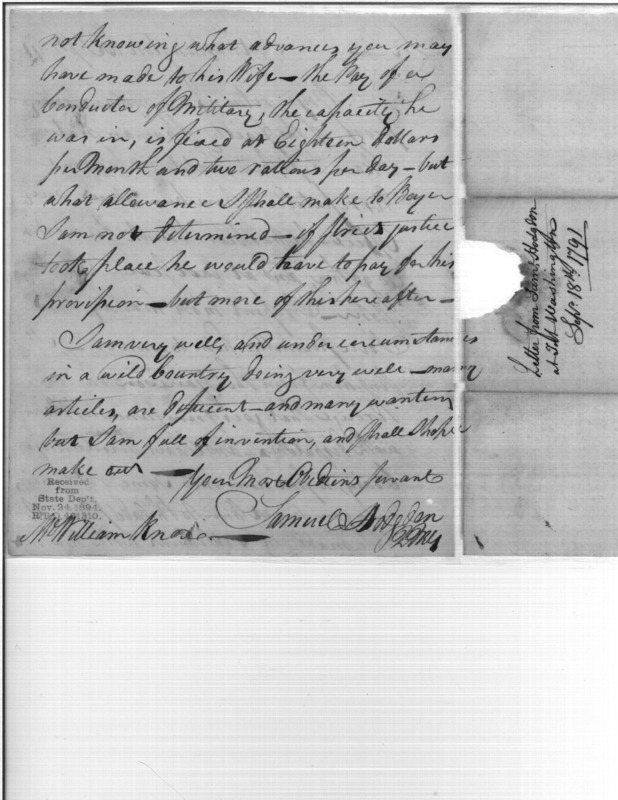 not knowing what advances you may
have made to his Wife – the Pay of a
Conductor of Military, the capacity he
was in, is fixed at Eighteen Dollars
per Month and two rations per day – but
what allowance I shall make to Boyer
I am not determined – if strict justice
took place he would have to pay for his
provision – but more of this hereafter –
I am very well, and under circumstances
in a wild Country doing very well – many
articles, are deficient – and many wanting
but I am full of invention, and shall I hope
make out – Your Most Obedient servant
Samuel Hodgdon
QMG
Mr William Knox
Received
from
State Dep't,
Nov. 24, 1894,
Letter from Saml Hodgdon
at Fort Washington
Sepr. 18th 1791